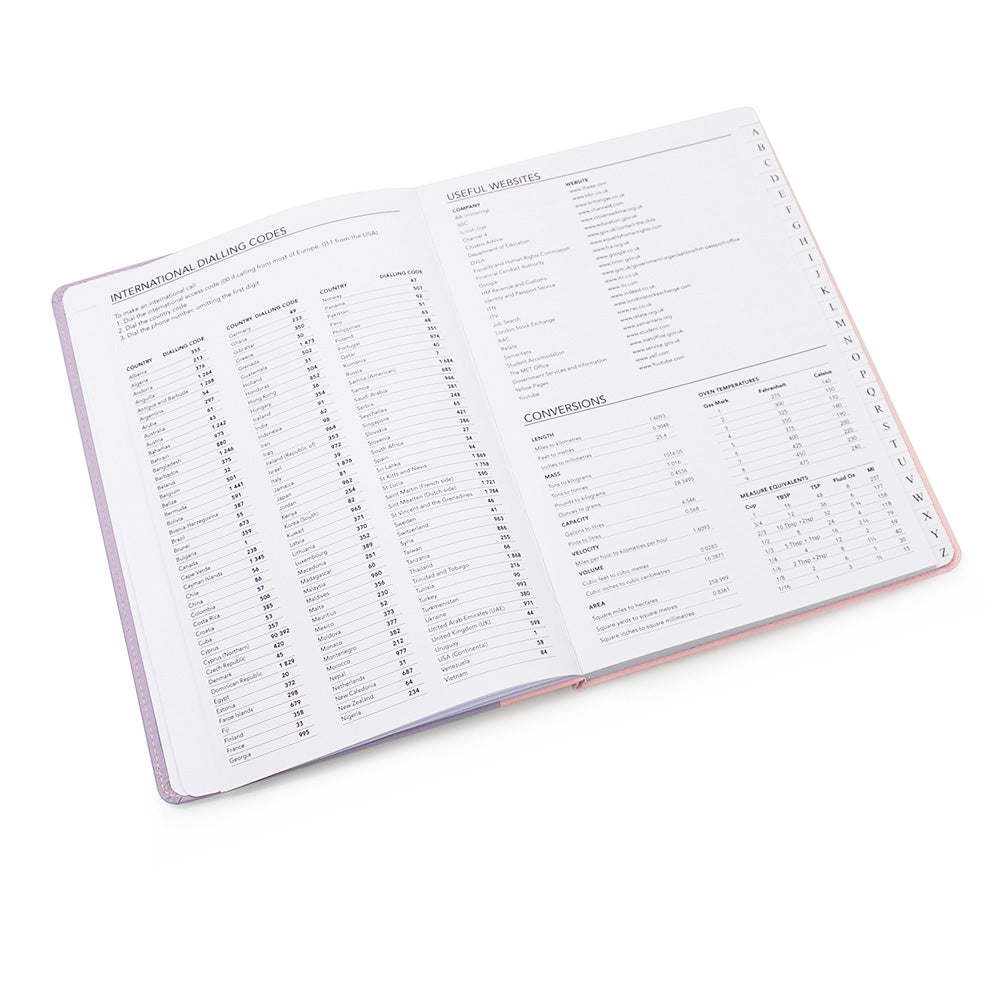 INTERNATIONAL DIALLING CODES
To make an international call:
1. Dial the international access code (00 if calling from most of Europe, 011 from the USA)
2. Dial the country code
3. Dial the phone number, omitting the first digit
COUNTRY DIALLING CODE
Albania 355
Algeria 213
Andorra 376
Anguilla 1 264
Antigua and Barbuda 1 268
Argentina 54
Aruba 297
Australia 61
Austria 43
Bahamas 1 242
Bahrain 973
Bangladesh 880
Barbados 1 246
Belarus 375
Belgium 32
Belize 501
Bermuda 1 441
Bolivia 591
Bosnia-Herzegovina 387
Brazil 55
Brunei 673
Bulgaria 359
Canada 1
Cape Verde 238
Cayman Islands 1 345
Chile 56
China 86
Colombia 57
Costa Rica 506
Croatia 385
Cuba 53
Cyprus 357
Cyprus (Northern) 90 392
Czech Republic 420
Denmark 45
Dominican Republic 1 829
Egypt 20
Estonia 372
Faroe Islands 298
Fiji 679
Finland 358
France 33
Georgia 995
COUNTRY DIALLING CODE
Germany 49
Ghana 233
Gibraltar 350
Greece 30
Grenada 1 473
Guatemala 502
Holland 31
Honduras 504
Hong Kong 852
Hungary 36
Iceland 354
India 91
Indonesia 62
Iran 98
Iraq 964
Ireland (Republic of) 353
Israel 972
Italy 39
Jamaica 1 876
Japan 81
Jordan 962
Kenya 254
Korea (South) 82
Kuwait 965
Latvia 371
Lithuania 370
Luxembourg 352
Macedonia 389
Madagascar 261
Malaysia 60
Maldives 960
Malta 356
Mauritius 230
Mexico 52
Moldova 373
Monaco 377
Montenegro 382
Morocco 212
Nepal 977
Netherlands 31
New Caledonia 687
New Zealand 64
Nigeria 234
COUNTRY DIALLING CODE
Norway 47
Panama 507
Pakistan 92
Peru 51
Philippines 63
Poland 48
Portugal 351
Qatar 974
Romania 40
Russia 7
Samoa (American) 1 684
Samoa 685
Saudi Arabia 966
Serbia 381
Seychelles 248
Singapore 65
Slovakia 421
Slovenia 386
South Africa 27
Spain 34
Sri Lanka 94
St Kitts and Nevis 1 869
St Lucia 1 758
Saint Martin (French side) 590
Sint Maarten (Dutch side) 1 721
St Vincent and the Grenadines 1 784
Sweden 46
Switzerland 41
Syria 963
Taiwan 886
Tanzania 255
Thailand 66
Trinidad and Tobago
Tunisia 216
Turkey 90
Turkmenistan 993
Ukraine 380
United Arab Emirates (UAE) 971
United Kingdom (UK) 44
Uruguay 598
USA (Continental) 1
Venezuela 58
Vietnam 84
USEFUL WEBSITES
COMPANY WEBSITE
AA (motoring) www.theaa.com
BBC www.bbc.co.uk
British Gas www.britishgas.co.uk
Channel 4 www.channel4.com
Citizens Advice www.citizensadvice.org.uk
Department of Education www.education.gov.uk
DVLA www.gov.uk/contact-the-dvla
Equality and Human Rights Commission www.equalityhumanrights.com
Financial Conduct Authority www.fca.org.uk
Google www.google.co.uk
HM Revenue and Customs www.hmrc.gov.uk
Identity and Passport Service www.gov.uk/government/organisations/hm-passport-office
ITN www.itn.co.uk
ITV www.itv.com
Job Search www.indeed.co.uk
London Stock Exchange www.londonstockexchange.com
RAC www.rac.co.uk
Relate www.relate.org.uk
Samaritans www.samaritans.org
Student Accomodation www.student.com
The MET Office www.metoffice.gov.uk
Government Services and Information www.service.gov.uk
Yellow Pages www.yell.com
Youtube www.Youtube.com
CONVERSIONS
LENGTH
Miles to kilometres 1.6093
Feet to metres 0.3048
Inches to millimetres 25.4
MASS
Tons to kilograms 1016.05
Tons to tonnes 1.016
Pounds to kilograms 0.4536
Ounces to grams 28.3495
CAPACITY
Gallons to litres 4.546
Pints to litres 0.568
VELOCITY
Miles per hour to kilometres per hour 1.6093
VOLUME
Cubic feet to cubic metres 0.0283
Cubic inches to cubic centimetres 16.3871
AREA
Square miles to hectares 258.999
Square yards to square metres 0.8361
Square inches to square millimetres
OVEN TEMPERATURES
Gas Mark Fahrenheit Celsius
1 275 140
2 300 150
3 325 170
4 350 180
5 375 190
6 400 200
7 425 220
8 450 230
9 475 240
MEASURE EQUIVALENTS
Cup TBSP TSP Fluid Oz Ml
1 16 48 8 237
3/4 12 36 6 177
2/3 10 Tbsp +2tsp 32 5 ⅓ 158
1/2 8 24 4 118
1/3 5 Tbsp + 1tsp 16 79
1/4 4 12 2 59
1/6 2 Tbsp +2tsp 8 40
1/8 2 6 1 30
1/16 1 3 ½ 15
A
B
C
D
E
F
G
H
I
J
K
L
M
N
O
P
Q
R
S
T
U
V
W
X
Y
Z